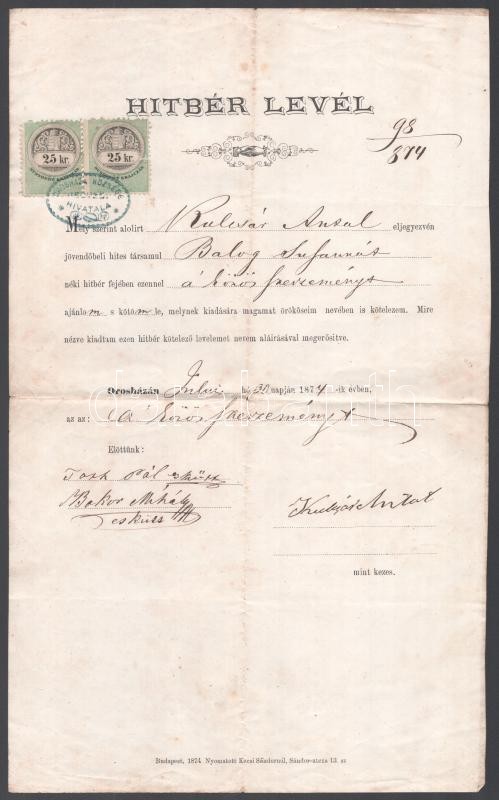 HITBÉR LEVÉL
98
874
25 kr.
25 kr.
HIVATALA
Mely szerint alolirt Kulcsár Antal eljegyezvén
jövendőbeli hites társamul Balog Susannát
néki hitbér fejében ezennel a közös szerzeményt
ajánlom s kötöm le, melynek kiadására magamat örököseim nevében is kötelezem. Mire
nézve kiadtam ezen hitbér kötelező levelemet nevem aláirásával megerősitve.
Orosházán Juliu hó 30 napján 1874-ik évben,
az az: a közös szerzeményt
Előttünk:
Pál eskütt
Bokor Mihály
esküt
Kulcsár Antal
mint kezes.
Budapest, 1874 Nyomatott Kocsi Sándornál, Sándor-utcza 13. sz